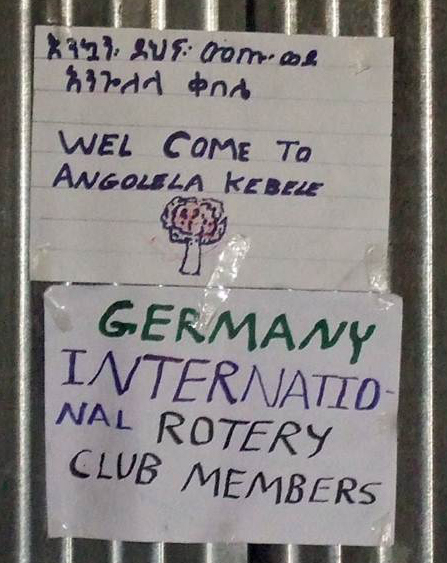 እንኳን ደህና መጡ ወደ
አንጎለላ ቀበሌ
WEL COME TO
ANGOLELA KEBELE
GERMANY
INTERNATIO-
NAL ROTERY
CLUB MEMBERS